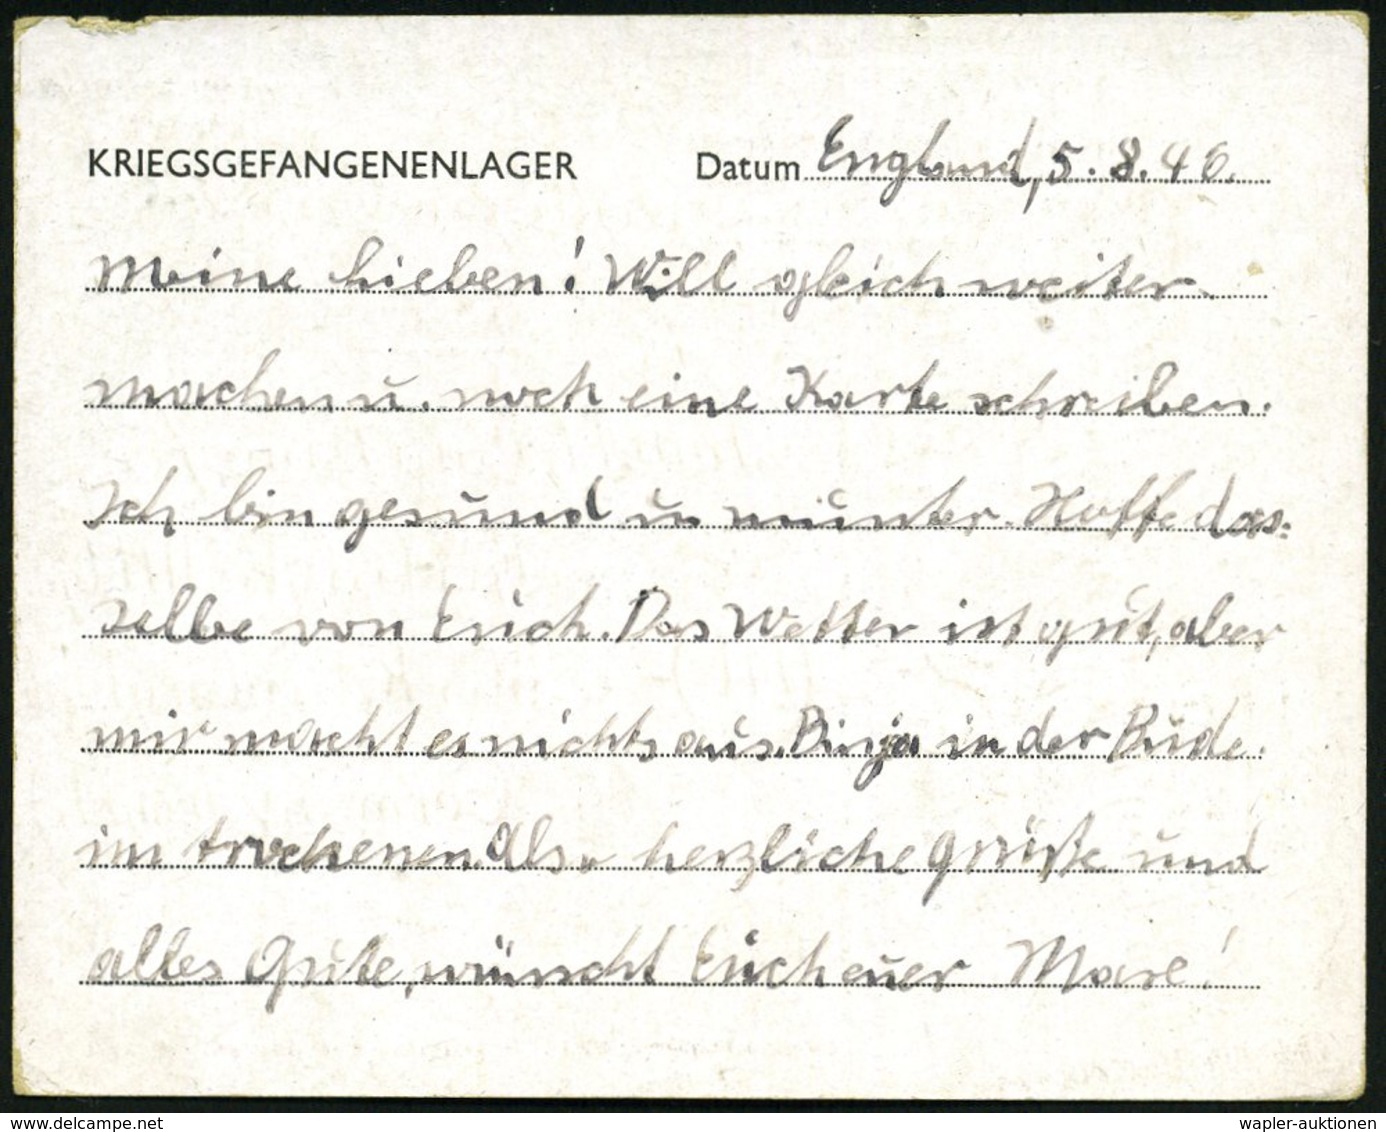 KRIEGSGEFANGENENLAGER Datum England, 5.8.46.
Meine Lieben! Will gleich weiter
machen u. noch eine Karte schreiben.
Ich bin gesund u munter. Hoffe das=
selbe von Euch. Das Wetter ist gut, aber
mir macht es nichts aus. Bin ja in der Bude
im trockenen. Also herzliche Grüße und
alles Gute, wünscht Euch euer !
wapler-auktionen